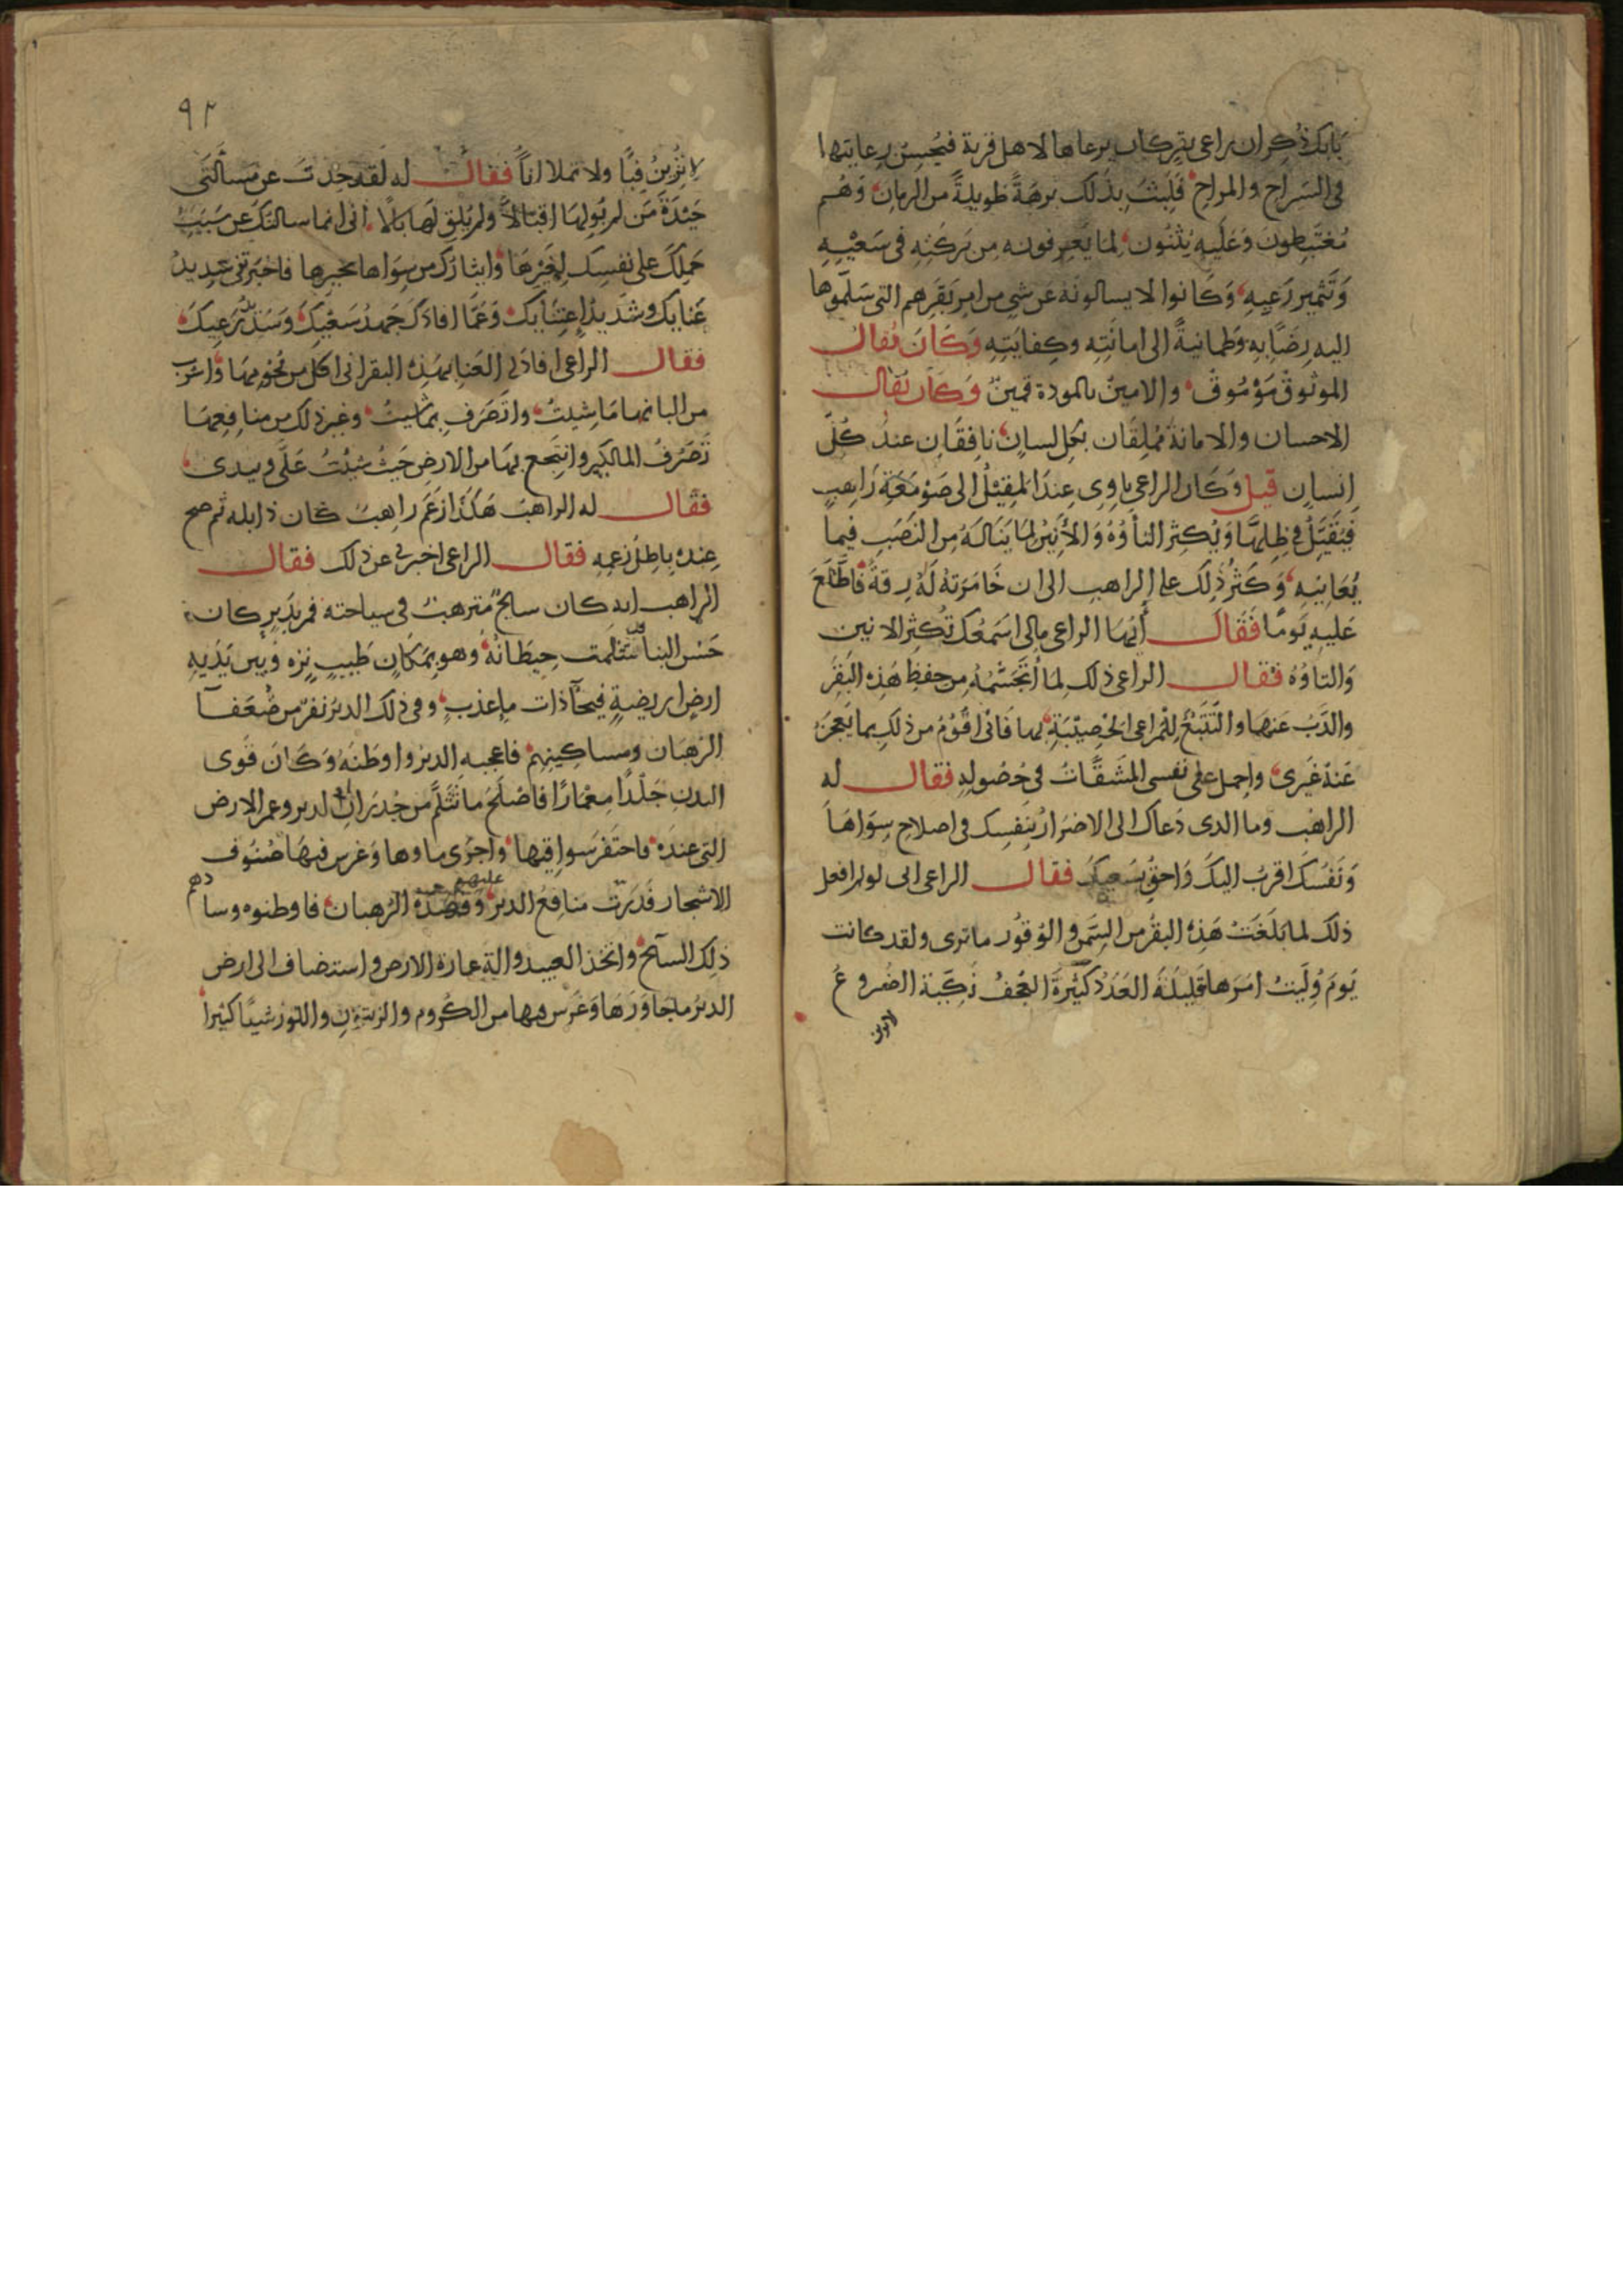 بابك ذُكِر ان راعى بقر كان يرعاها لاهل قرية فيُحسِن رِعايتها
فى السَراح والمراح فَلَبِثَ بذلك برهةً طويلةً من الزمان وَهُم
مُغتَبِطونَ وَعَلَيهِ يُثنُون لما يَعرِفونه مِن بَركَتِه فى سَعْيِهِ
وَتَثمير رَعيِهِ وَكَانوا لا يسالونَهُ عَن شىٍ من امر بَقَرِهم التى سَلّموها
اليه رِضًا بِهِ وَطمانيةً الى امانَتِه وكِفايَتِهِ وَكَانَ يُقال
الموثوقُ مَوْمُوقٌ والامينُ بالمودة قمينٌ وَكان يُقال
الاحسان والامانة مُملِقَان بكل لسانٍ نافِقَانِ عندَ كُلّ
اِنسانٍ قيل وَكَان الراعى ياوِى عِندَ المَقِيْلُ الى صَوْمَعَةِ رَاهبٍ
فَيَتقَيَّلُ فى ظِلِّهَا وَيُكثِرُ التأوُهَ وَالأَنِيْنَ لِمَا يَنَالَهُ مِنَ النَصَبِ فيما
يُعَانِيهِ وَكَثُرَ ذَلِكَ على الراهبِ الى ان خَامَرَتهُ لَهُ رِقةٌ فَاطَّلَعَ
عَليهِ يَومًا فَقَالَ أيها الراعى مالى اَسمَعُكَ تُكثِرُ الانين
وَالتاوُهَ فقال الراعى ذلك لِمَا أتَجَشَمُهُ مِن حِفظِ هَذِه البَقَرِ
والذَّبِ عَنهَا والتَّتَبُّعِ لِلمَراعى الخِصِيْبَةِ بها فَانى اقُوْمُ من ذلك بِما يَعجزُ
عَنهُ غَيرى واحمل على نفسى المَشَقَّاتِ فى حُصُولِهِ فقال له
الراهب وما الذى دَعَاك الى الاضرَارُ بِنَفسِك فى اصلاح سِوَاهَا
وَنَفْسُكَ اقرَبُ اليكَ وَاحقُ بِسَعيِكَ فقال الراعى انى لو لم افعل
ذَلك لما بَلَغَتْ هَذِهِ البقرُ من السِّمَنِ والوُفُورِ ما ترى ولقد كانت
يَومَ وُلِّيتُ امرَهَا قَلِيْلَةَ العَدَدُ كَثيْرَةَ العَجَفُ نَكِبَة الضُروعَ
لا تزين
٩٢
لا تُزَيِنُ فِنًا ولا تملا اناً فقال له لقد حِدتَ عن مَسألَتى
حَيْدَةَ مَن لم يُولِهَا اقبَالاً ولم يُلقِ لَهَا بَالاً انى انما سالتك عن سَبَبِ
حَملِكَ على نفسِك لِغَيْرهَا وَايثارِك من سِوَاها بخيرها فاخبَرتنى عن شَدِيدُ
عَنايِك وشَدِيدُ اعتِنايِك وَعَمَّا افادَك جَهدُ سَعْيِكَ وَسَدَّ رَعيِكَ
فقال الراعى افادَنى العَنا بهَذِهُ البقر انى اكل من لُحُوْمِهَا واشرب
من البانها مَا شِيتُ واتَصَرف بما شِيتُ وغير ذلك من منافعهَا
تَصَرُفَ المالكين وانتَجع بهَا من الارض حَيثُ شِيْتُ عَلَّى ويَدى
فقال له الراهبُ هَكَذَا زعَم رَاهبٌ كَان ذا بله ثم صح
عِندَهُ بِاطِلُ زعمِه فقال الراعى اخبرنى عن ذلك فقال
الراهب انه كان سايحٌ مُترهبٌ فى سِياحته فمر بدَيرٍ كان
حَسَن البنا قد تثلَّمت حِيطَانُهُ وَهو بمَكَانٍ طَيبٍ نزه وَبين يَدَيهِ
ارض اريضةٍ فيحآ ذات ماٍ عذبٍ وفى ذلك الديرُ نفرٌ من ضُعَفآ
الرهبَان ومساكينهم فاعجبه الديرُ واوطَنَهُ وَكَانَ قَوى
البدن جَلْدًا مِعْمَارًا فاصلَحَ ما تَثلَّمَ من جُدرَانِ الدير وعمر الارض
التى عندَهُ فاحتَفَر سَواقيَها واجرَى ماوها وَغرس فيهَا صُنُوف
الاشجار فَدَرَّت منافِعُ الدير عليهم وقَصَدَهُ الرهبان فاوطنوه وسادهم
ذلِك السآيح واتخذ العبيد والة عمارة الارض واستضاف الى ارض
الديرُ ما جَاوَرَهَا وَغَرَس فيها من الكُروم والزيتونِ واللوز شيئًا كثيرا